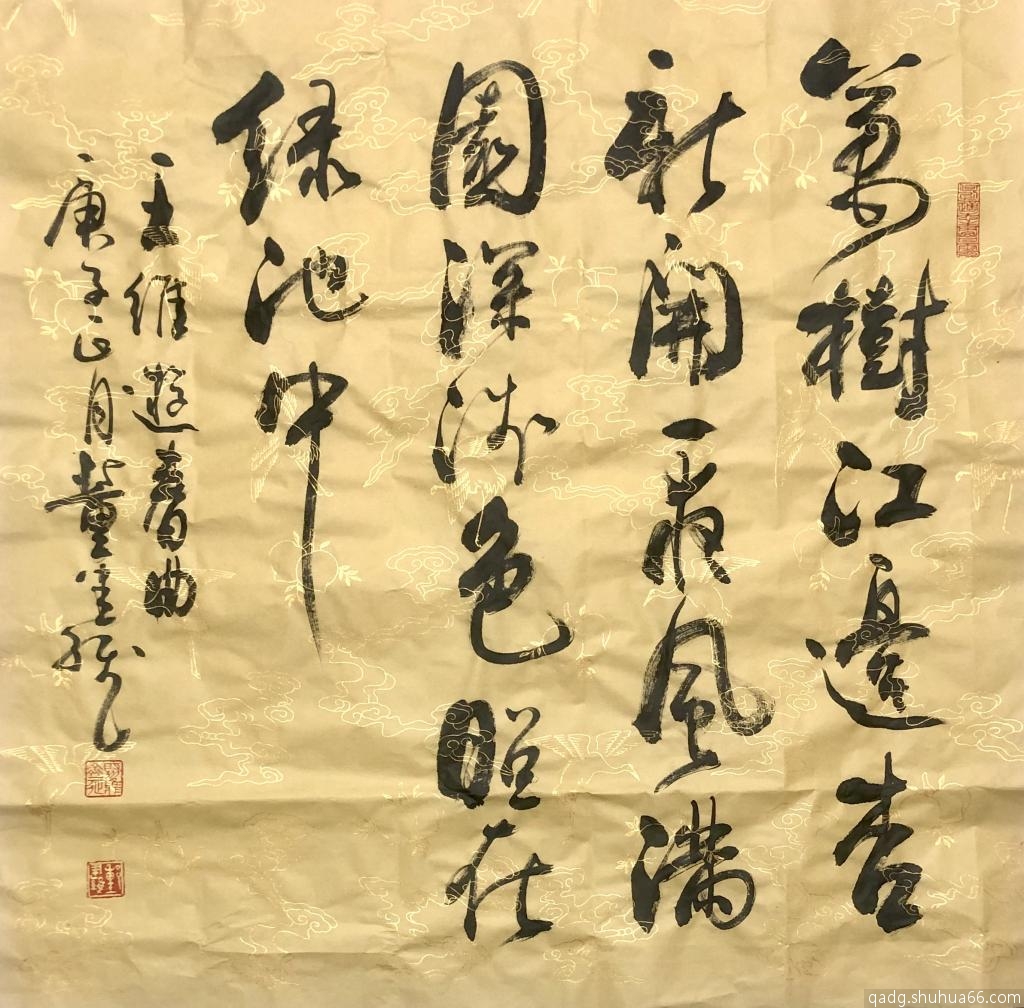 萬樹江邊杏
新開一夜風滿
園深淺色照在
緑池中
王維遊春曲
庚子正月董
qadg.shuhua66.com